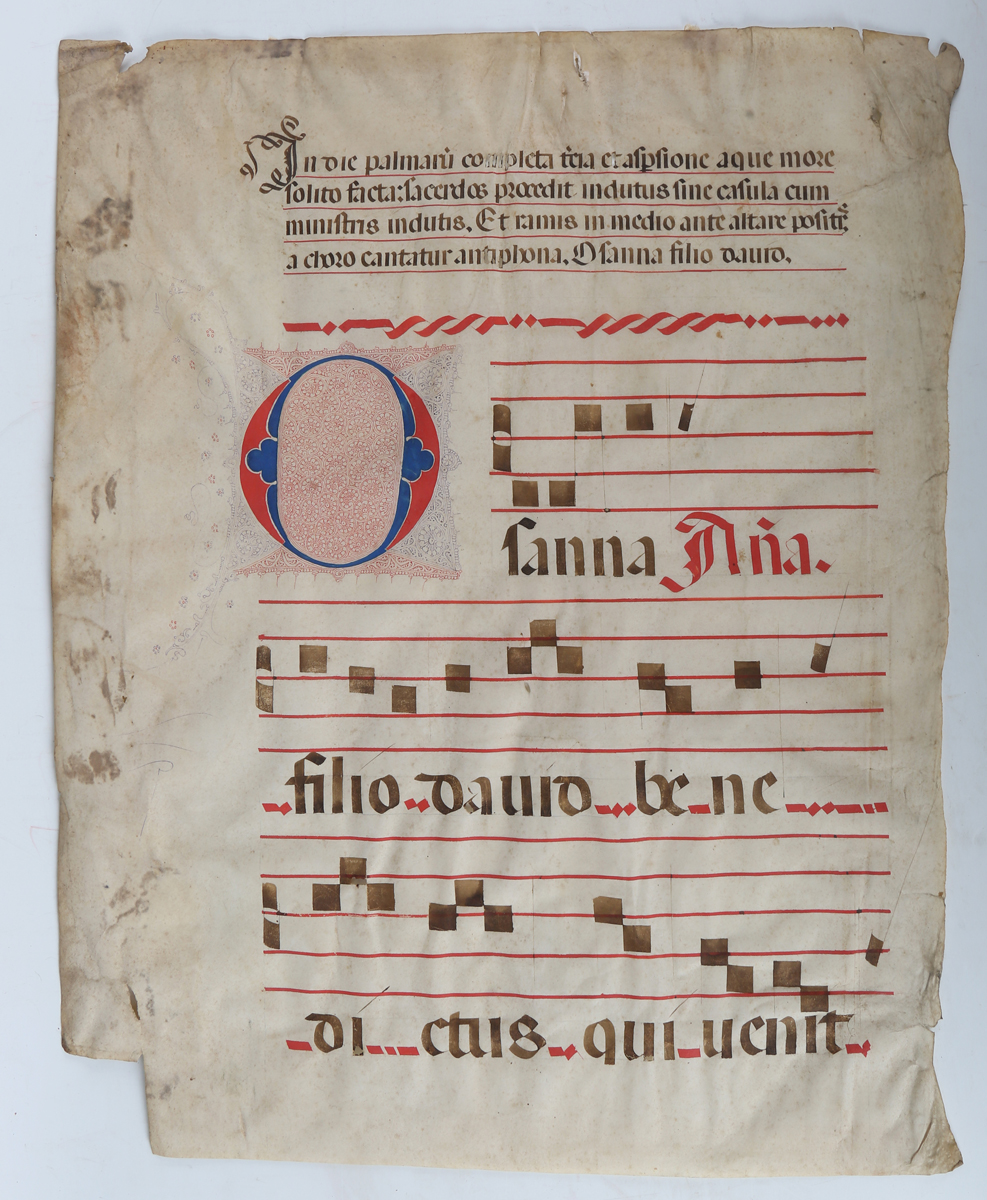 In die palmarū completa tēia et aspsione aque more
solito facta: sacerdos procedit indutus sine casula cum
ministris indutis. Et ramis in medio ante altare positis:
a choro cantatur antiphona. Osanna filio dauid.
O sanna Aña.
filio dauid be ne
di ctus qui uenit